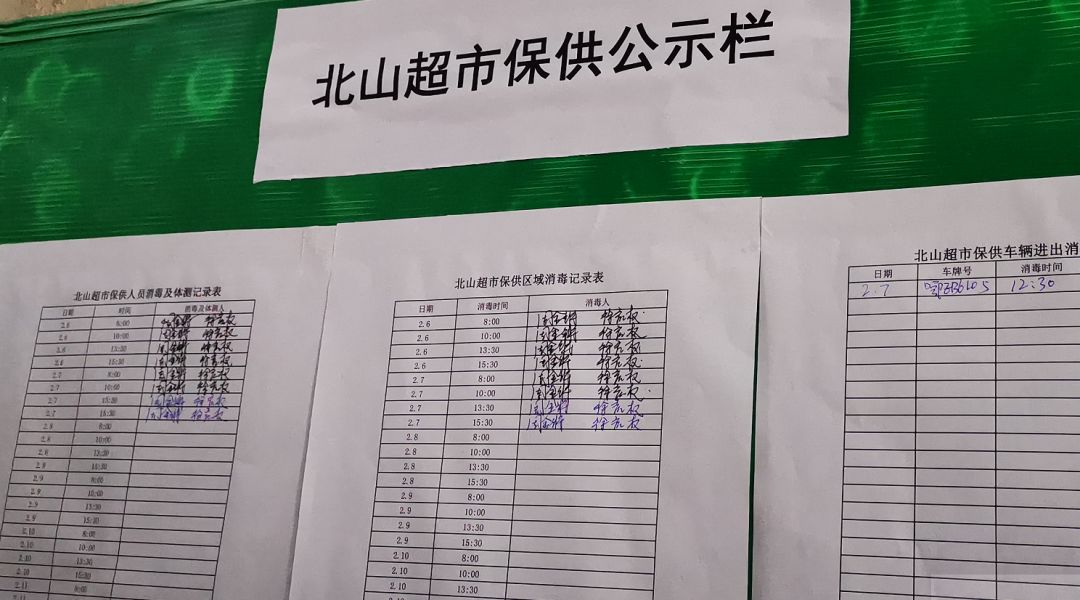 北山超市保供公示栏
北山超市保供人员消毒及体测记录表
日期 时间 消毒及体测人
2.6 8:00
2.6 10:00
2.6 13:30
2.6 15:30
2.7 8:00
2.7 10:00
2.7 13:30
2.7 15:30
2.8 8:00
2.8 10:00
2.8 13:30
2.8 15:30
2.9 8:00
2.9 10:00
2.9 13:30
2.9 15:30
2.10 8:00
2.10 10:00
2.10 13:30
2.10 15:30
2.11 8:00
北山超市保供区域消毒记录表
日期 消毒时间 消毒人
2.6 8:00
2.6 10:00
2.6 13:30
2.6 15:30
2.7 8:00
2.7 10:00
2.7 13:30
2.7 15:30
2.8 8:00
2.8 10:00
2.8 13:30
2.8 15:30
2.9 8:00
2.9 10:00
2.9 13:30
2.9 15:30
2.10 8:00
2.10 10:00
2.10 13:30
北山超市保供车辆进出消
日期 车牌号 消毒时间
2.7 12:30